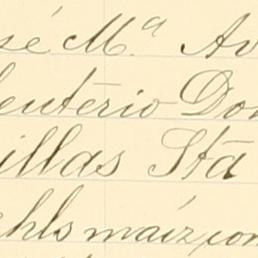 sé Mª Av
leuterio Don
illas Sta
chls maiz, con